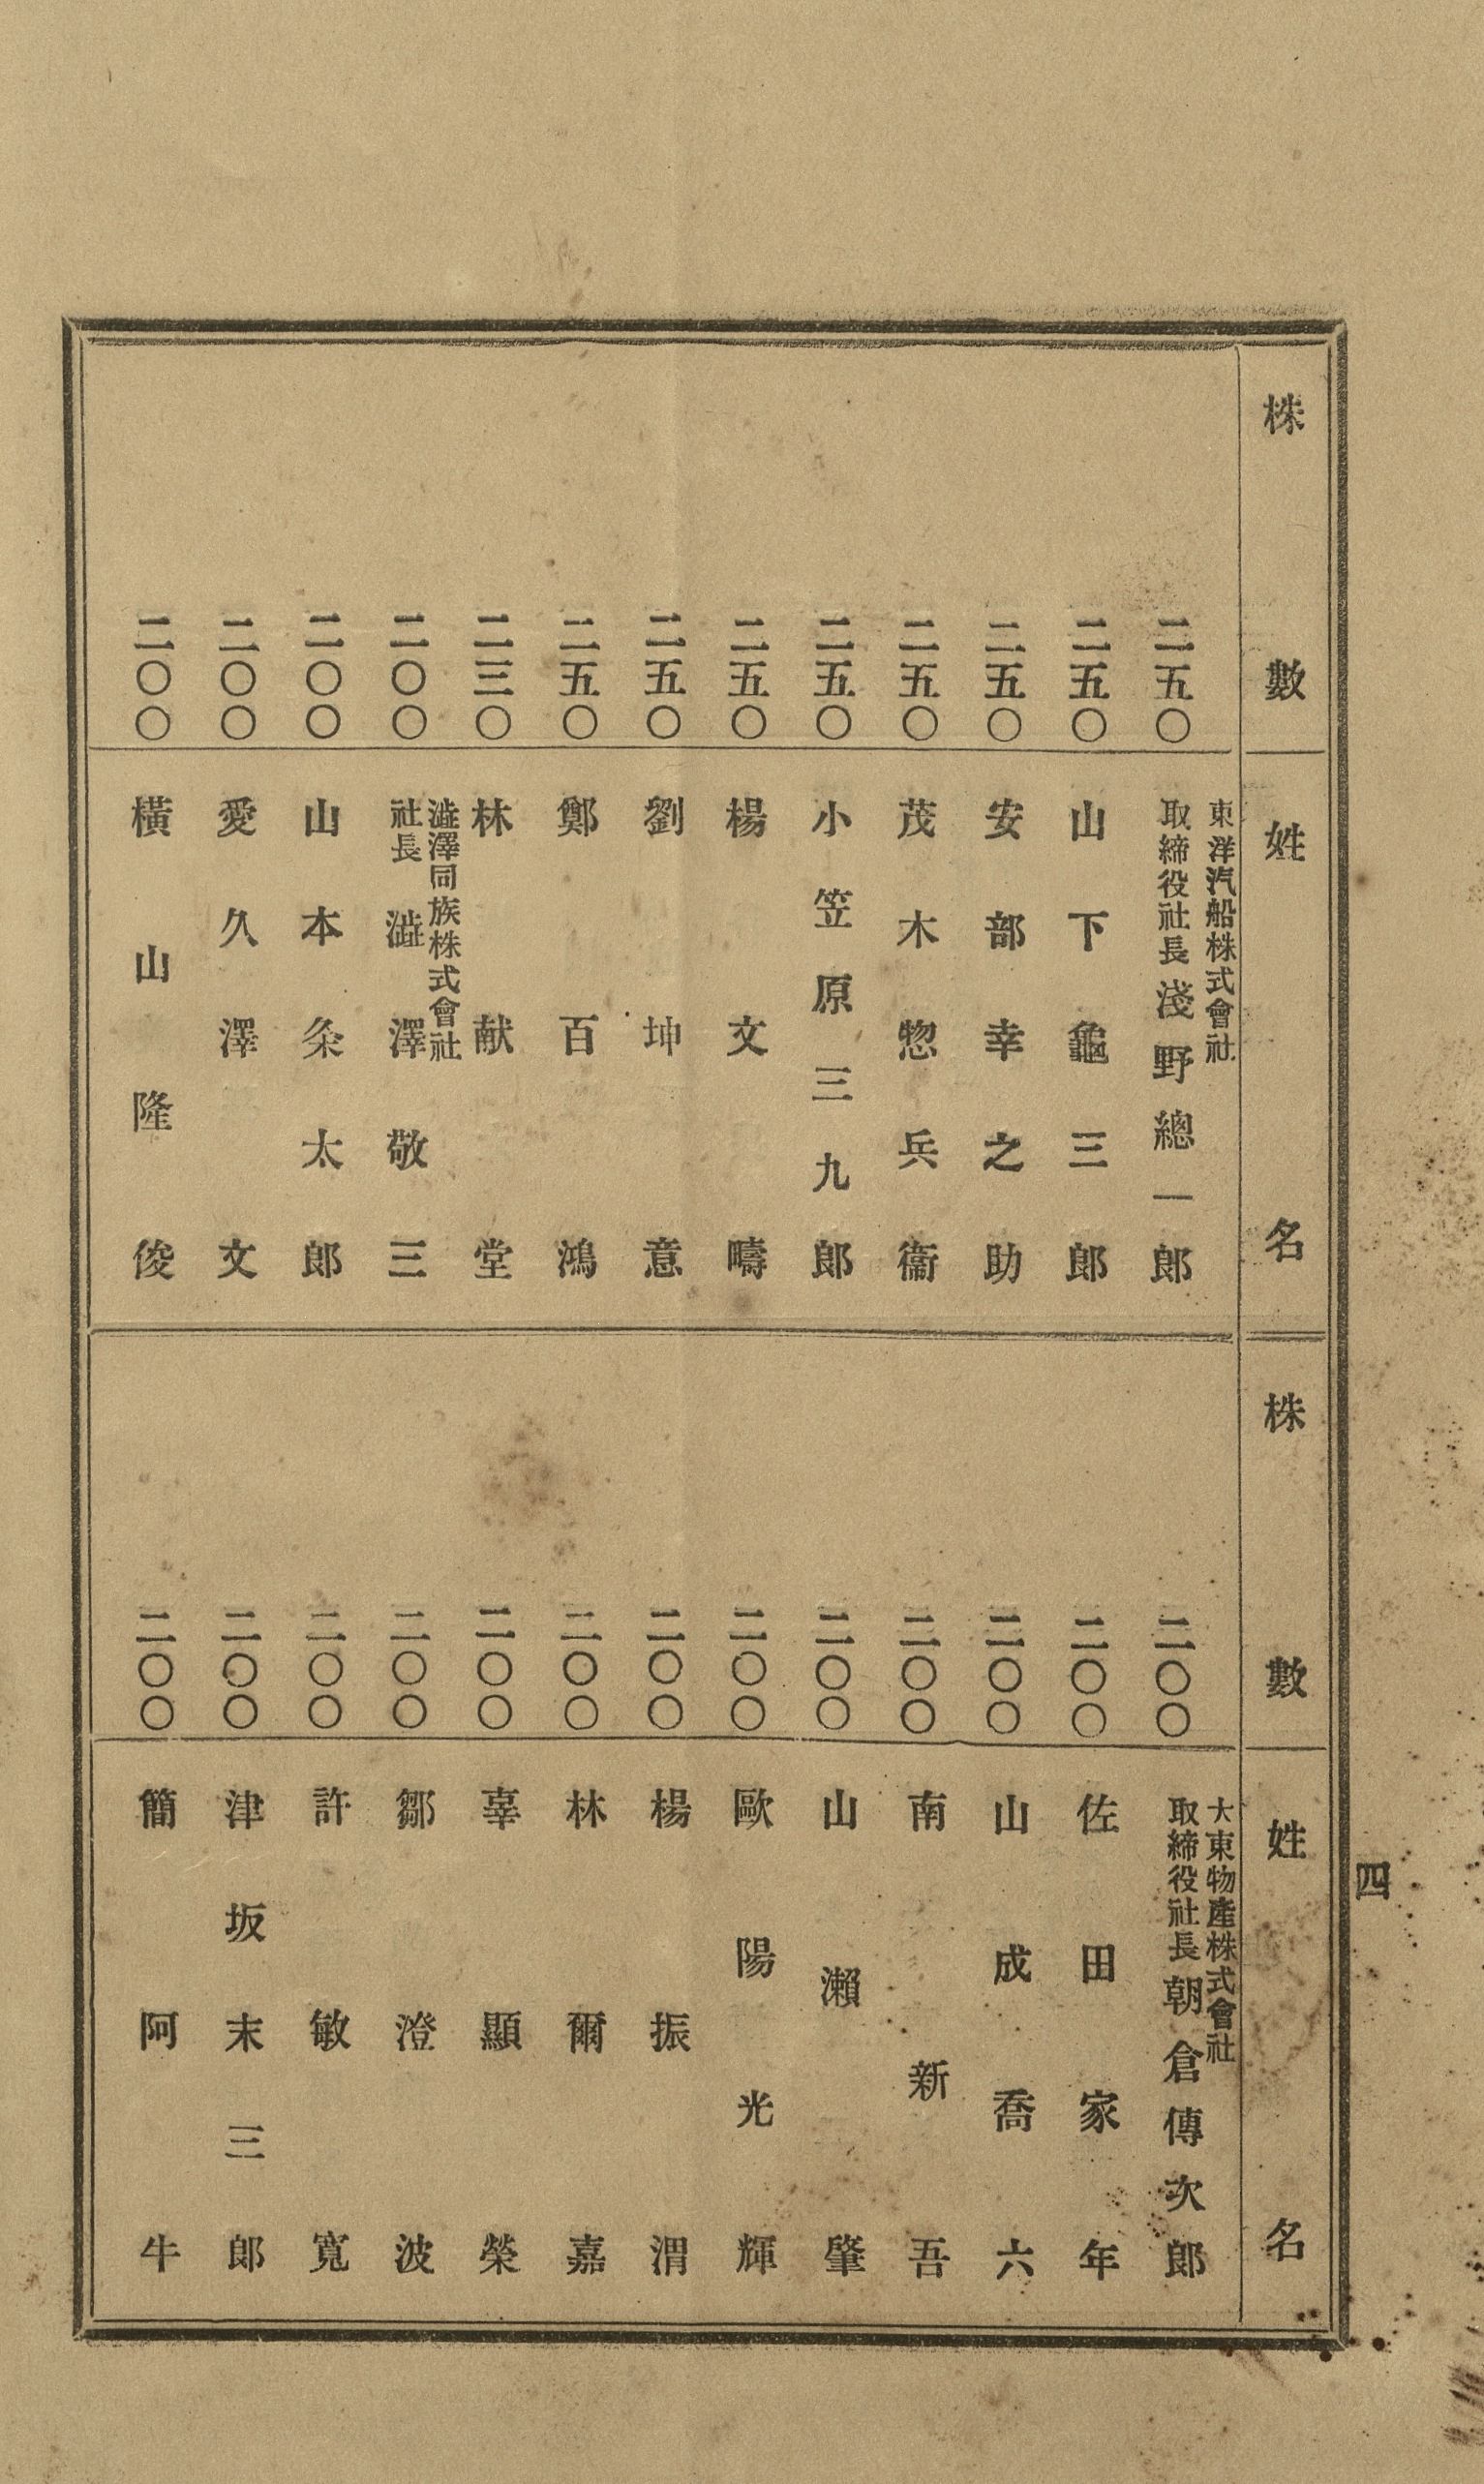 株數 姓名 株數 姓名
二五〇 東洋汽船株式會社取締役社長 淺野總一郎
二五〇 山下龜三郎
二五〇 安部幸之助
二五〇 茂木惣兵衞
二五〇 小笠原三九郎
二五〇 楊文疇
二五〇 劉坤意
二五〇 鄭百鴻
二三〇 林献堂
二〇〇 澁澤同族株式會社社長 澁澤敬三
二〇〇 山本条太郎
二〇〇 愛久澤文
二〇〇 橫山隆俊
二〇〇 大東物產株式會社取締役社長 朝倉傳次郎
二〇〇 佐田家年
二〇〇 山成喬六
二〇〇 南新吾
二〇〇 山瀨肇
二〇〇 歐陽光輝
二〇〇 楊振渭
二〇〇 林爾嘉
二〇〇 辜顯榮
二〇〇 鄒澄波
二〇〇 許敏寬
二〇〇 津坂末三郎
二〇〇 簡阿牛
四